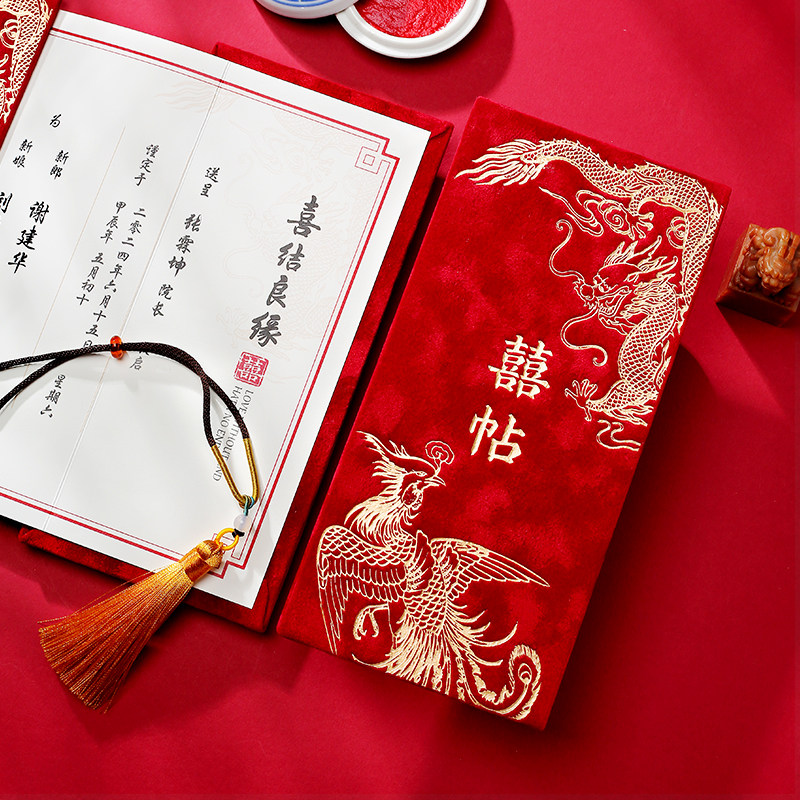 喜结良缘
囍
LOVE WITHOUT END AND
HAVE NO END
送呈 张霖坤 院长
谨定于
二零二四年六月十五日 星期六
甲辰年 五月初十
为
新郎 谢建华
新娘 刘
囍
帖